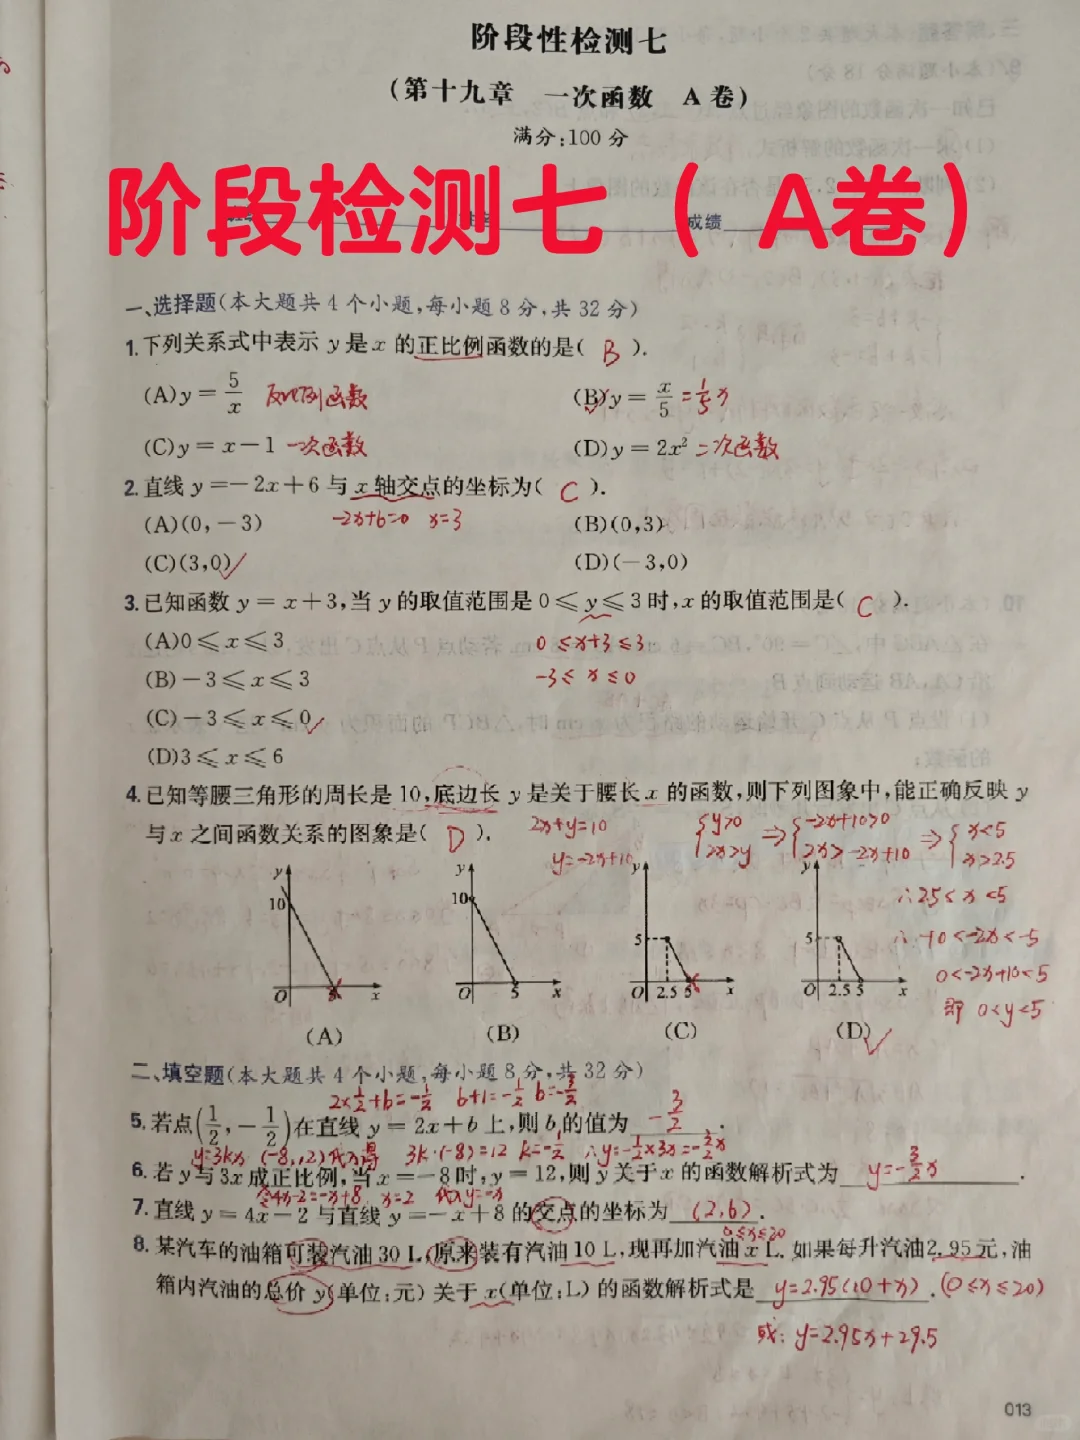 阶段性检测七
(第十九章 一次函数 A卷)
满分:100分
阶段检测七( A卷)
成绩
一、选择题(本大题共4个小题,每小题8分,共32分)
1.下列关系式中表示y是x的正比例函数的是( B ).
(A)y=5/x 反比例函数 (B)y=x/5=1/5x
(C)y=x-1 一次函数 (D)y=2x² 二次函数
2.直线y=-2x+6与x轴交点的坐标为( C ).
(A)(0,-3) -2x+6=0 x=3 (B)(0,3)
(C)(3,0)✓ (D)(-3,0)
3.已知函数y=x+3,当y的取值范围是0≤y≤3时,x的取值范围是( C ).
(A)0≤x≤3 0≤x+3≤3
(B)-3≤x≤3 -3≤x≤0
(C)-3≤x≤0✓
(D)3≤x≤6
4.已知等腰三角形的周长是10,底边长y是关于腰长x的函数,则下列图象中,能正确反映y
与x之间函数关系的图象是( D ). 2x+y=10 {y>0 ⇒ {-2x+10>0 ⇒ {x<5
y=-2x+10 2x>y 2x>-2x+10 x>2.5
∴2.5<x<5
∴-10<-2x<-5
0<-2x+10<5
即 0<y<5
y 10 O 5 x
y 10 O 5 x
y 5 O 2.5 5 x
y 5 O 2.5 5 x
(A) (B) (C) (D)✓
二、填空题(本大题共4个小题,每小题8分,共32分)
2×1/2+b=-1/2 b+1=-1/2 b=-3/2
5.若点(1/2,-1/2)在直线y=2x+b上,则b的值为 -3/2 .
y=3kx (-8,12)代入得 3k·(-8)=12 k=-1/2 ∴y=-1/2×3x=-3/2x
6.若y与3x成正比例,当x=-8时,y=12,则y关于x的函数解析式为 y=-3/2x .
令4x-2=-x+8 x=2
7.直线y=4x-2与直线y=-x+8的交点的坐标为 (2,6) .
0≤x≤20
8.某汽车的油箱可装汽油30 L,原来装有汽油10 L,现再加汽油x L.如果每升汽油2.95元,油
箱内汽油的总价y(单位:元)关于x(单位:L)的函数解析式是 y=2.95(10+x) .(0≤x≤20)
或:y=2.95x+29.5
013